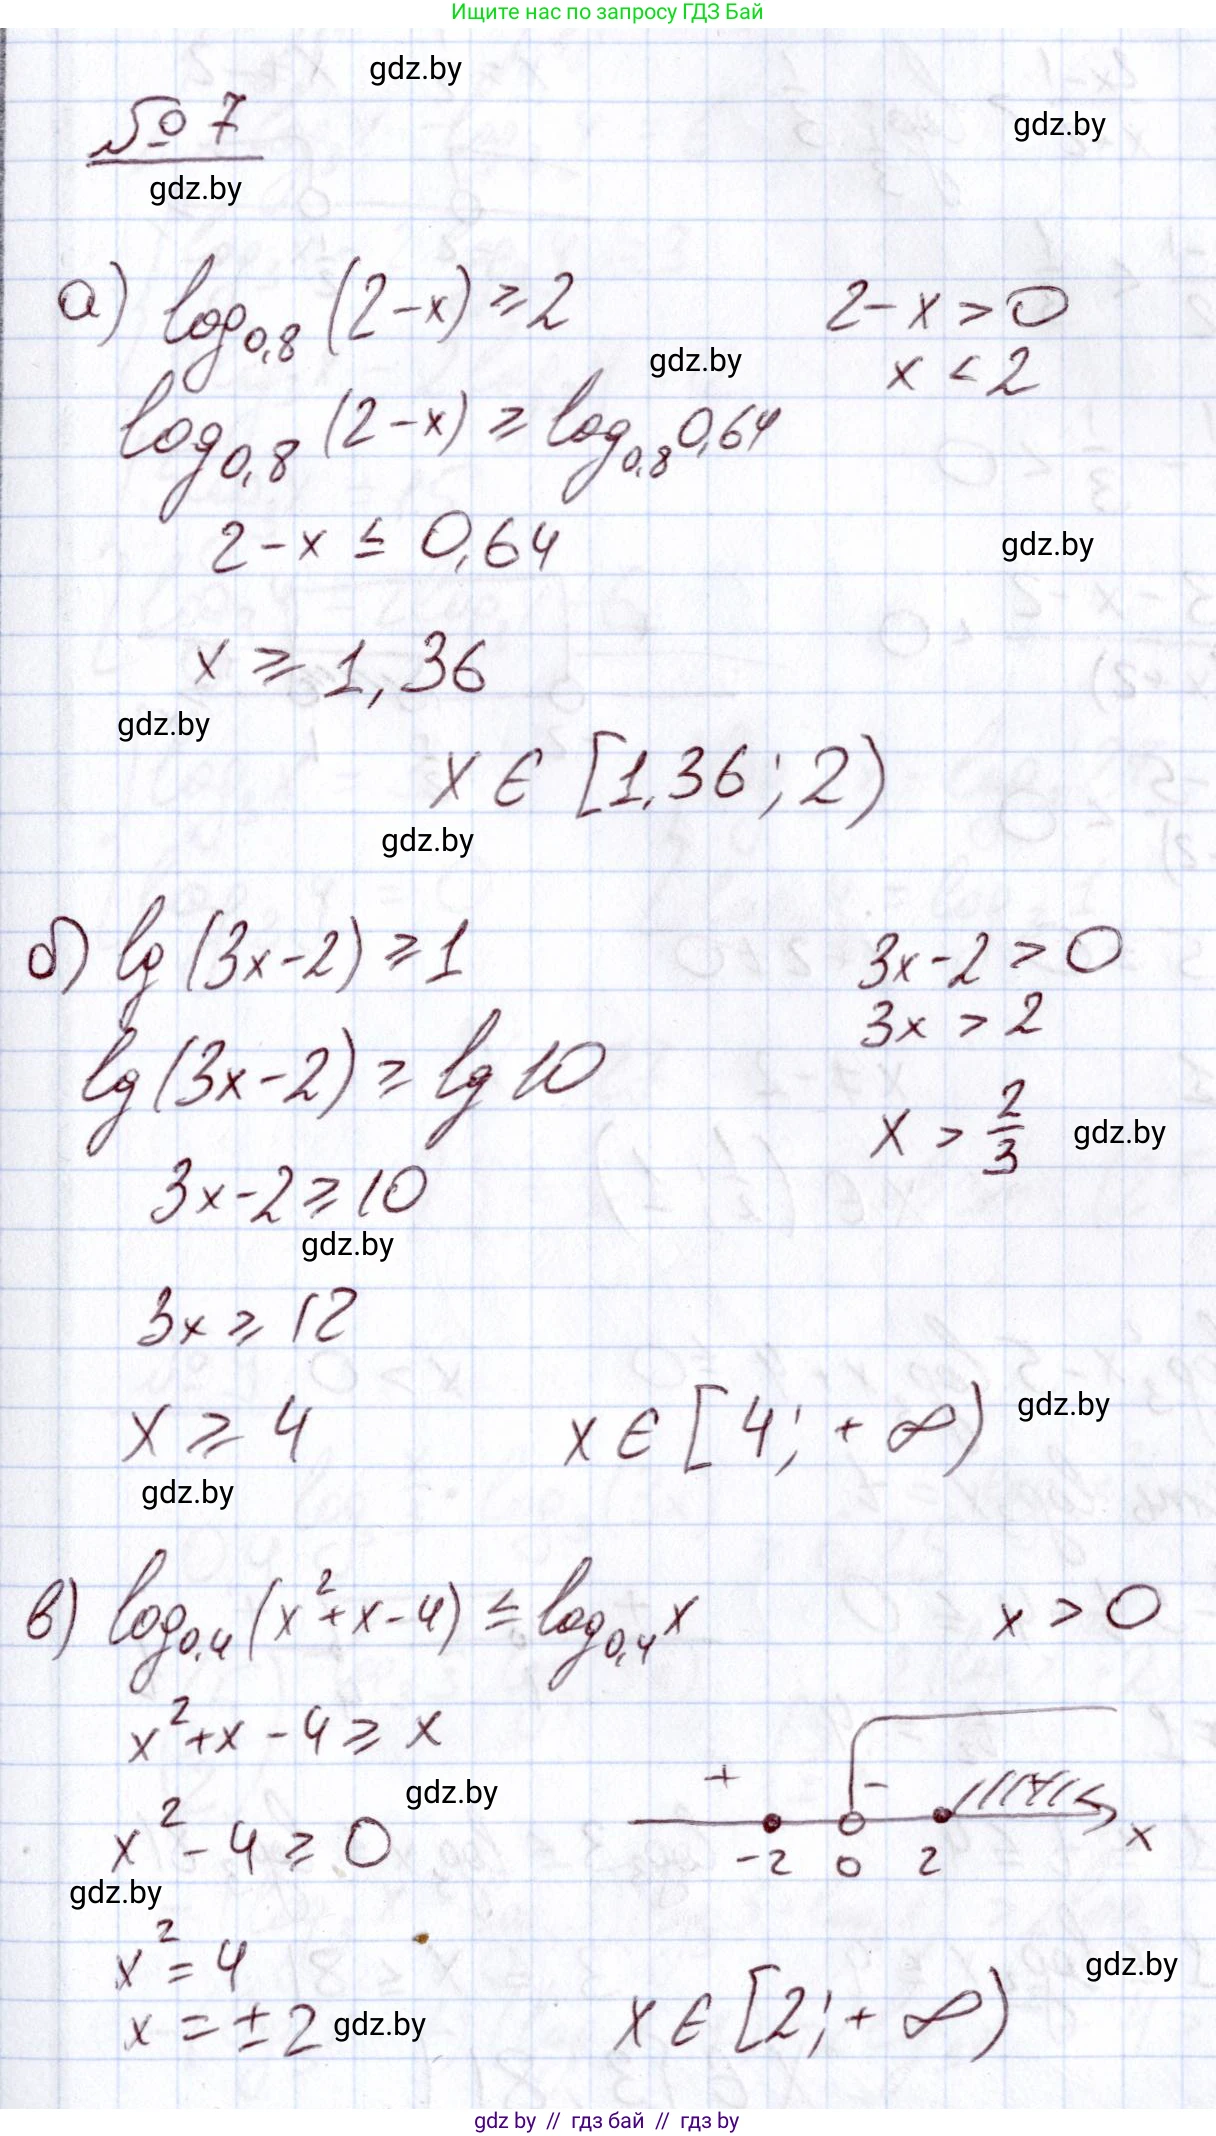 Ищите нас по запросу ГДЗ Бай
gdz.by
№ 7
gdz.by
gdz.by
а) log₀,₈ (2-x) ≥ 2
2-x > 0
gdz.by
x < 2
log₀,₈ (2-x) ≥ log₀,₈ 0,64
2-x ≤ 0,64
gdz.by
x ≥ 1,36
gdz.by
x ∈ [1,36; 2)
gdz.by
б) lg (3x-2) ≥ 1
3x-2 > 0
3x > 2
lg (3x-2) ≥ lg 10
x > 2/3
gdz.by
3x-2 ≥ 10
gdz.by
3x ≥ 12
x ≥ 4
x ∈ [4; +∞)
gdz.by
gdz.by
в) log₀,₄ (x²+x-4) ≤ log₀,₄ x
x > 0
x²+x-4 ≥ x
gdz.by
+ -
x²-4 ≥ 0
-2 0 2 x
gdz.by
x² = 4
gdz.by
x = ±2
gdz.by
x ∈ [2; +∞)
gdz by // гдз бай // gdz by